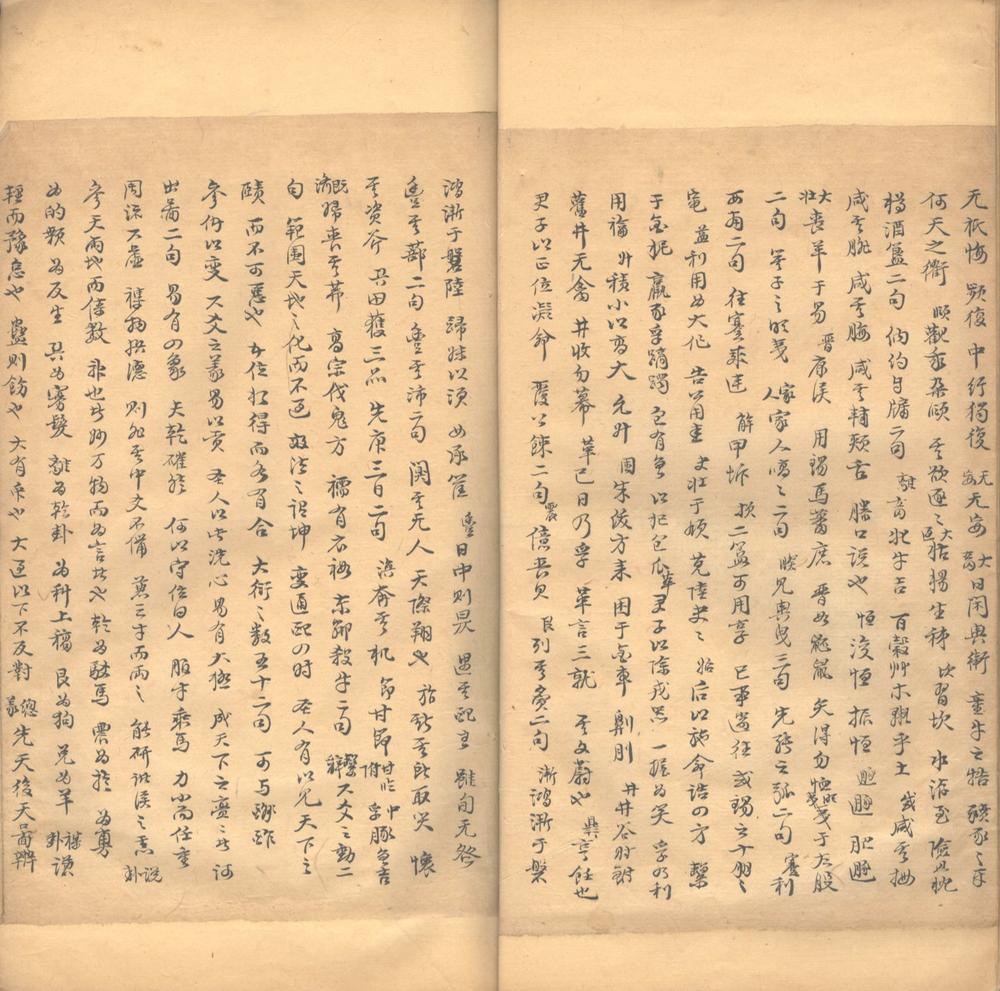 无祇悔 频復 中行獨復 无妄无妄 大畜曰闲輿衛 童牛之牿 豶豕之牙
何天之衢 頤觀我朶頤 其欲逐逐 大過枯楊生稊 坎習坎 水洊至 險且枕
樽酒簋二句 納約自牖二句 離畜牝牛吉 百穀艸木麗乎土 咸咸其拇
咸其腓 咸其脢 咸其輔頰舌 滕口説也 恒浚恒 振恒 遯遯 肥遯
大壯喪羊于易 晋康侯 用錫馬蕃庶 晋如鼫鼠 矢得勿恤 明夷夷于左股
二句 箕子之明夷 家人家人嗃嗃二句 睽見輿曳三句 先張之弧二句 蹇利
西南二句 往蹇來連 解甲坼 損二簋可用享 已事遄往 或錫之十朋之
龜 益利用為大作 告公用圭 夬壯于頄 莧陸夬夬 姤后以施命誥四方 繫
于金柅 羸豕孚蹢躅 包有魚 以杞包瓜 萃君子以除戎器 一握為笑 孚乃利
用禴 升積小以高大 允升 困朱紱方來 困于金車 劓刖 井井谷射鮒
舊井无禽 井收勿幕 革已日乃孚 革言三就 其文蔚也 鼎亨飪也
君子以正位凝命 覆公餗二句 震億喪貝 艮列其夤二句 漸鴻漸于磐
鴻漸于磐陸 歸妹以須 女承筐 豐日中則昃 遇其配主 雖旬无咎
豐其蔀二句 豐其沛二句 闃其无人 天際翔也 旅斯其所取災 懷
其資斧 巽田獲三品 先庚三日二句 渙奔其机 節甘節 中孚豚魚吉
既濟婦喪其茀 高宗伐鬼方 繻有衣袽 東鄰殺牛二句 繫辭六爻之動二
句 範圍天地之化而不過 效法之謂坤 變通配四時 聖人有以見天下之
賾 而不可惡也 五位相得而各有合 大衍之數五十二句 可与酬酢
參伍以變 六爻之義易以貢 聖人以此洗心 易有大極 成天下之亹亹者 河
出圖二句 易有四象 夫乾確然 何以守位曰人 服牛乘馬 力小而任重
周流六虚 襍物撰德 則非其中爻不備 兼三才而兩之 能研諸侯之慮 説卦
參天兩地而倚數 神也者妙万物而為言者也 乾為駁馬 震為旉 為勇
為的顙 為反生 巽為寡髮 離為乾卦 為科上稿 艮為狗 兌為羊 襍卦謙
輕而豫怠也 蠱則飭也 大有衆也 大過以下不反對 總義先天後天圖辨